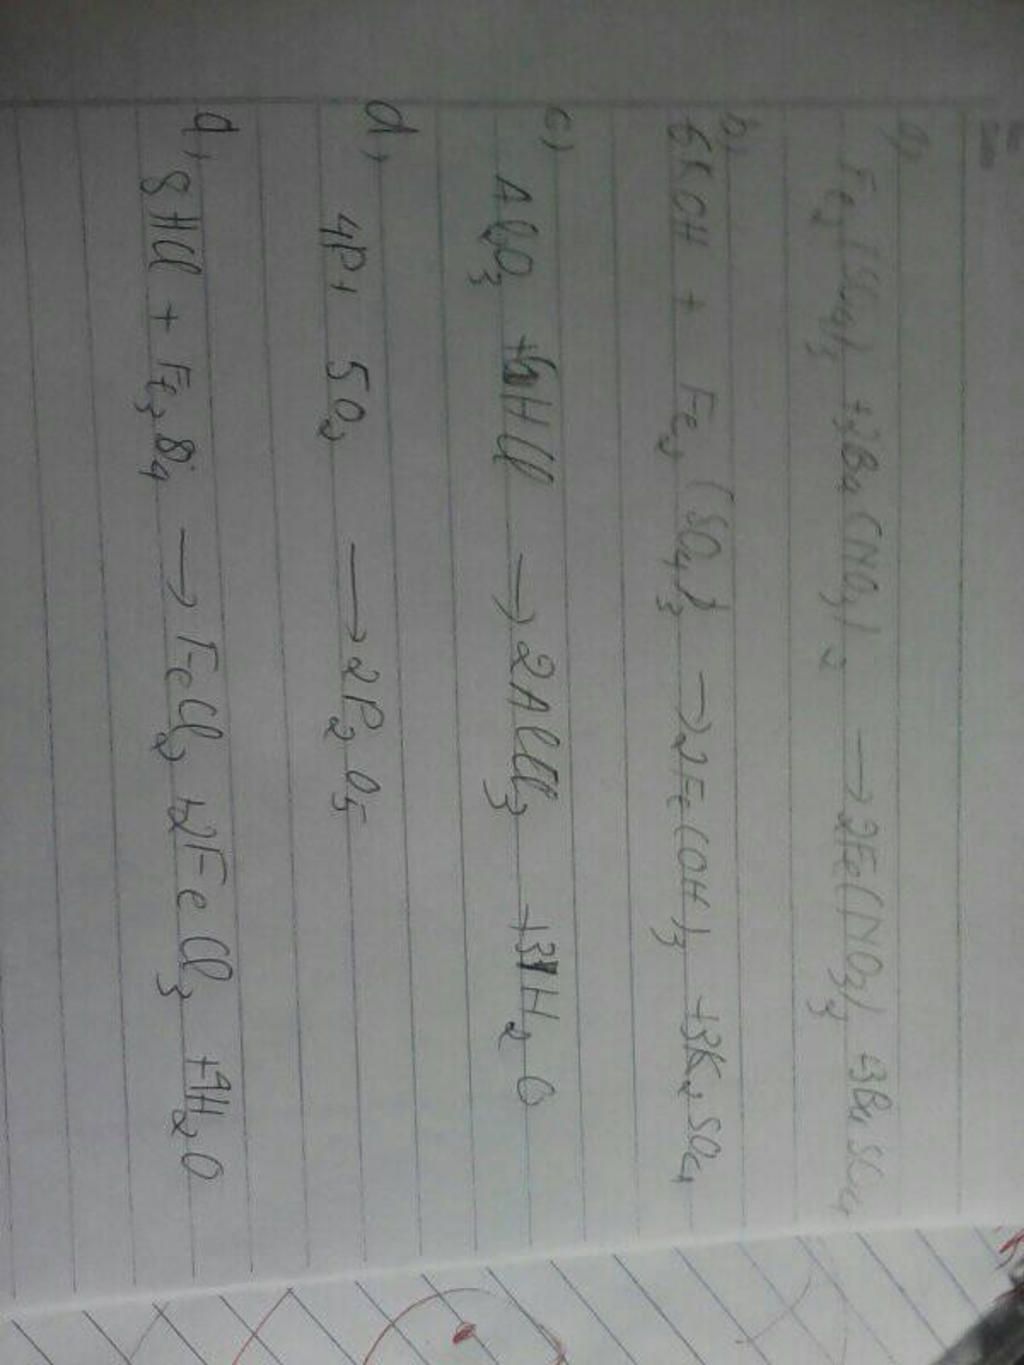 a,
Fe₂(SO₄)₃ +3Ba(NO₃)₂ → 2Fe(NO₃)₃ +3BaSO₄
b,
6KOH + Fe₂(SO₄)₃ → 2Fe(OH)₃ +3K₂SO₄
c)
Al₂O₃ +6HCl → 2AlCl₃ +3H₂O
d,
4P+ 5O₂ → 2P₂O₅
d,
8HCl + Fe₃O₄ → FeCl₂ +2FeCl₃ +4H₂O